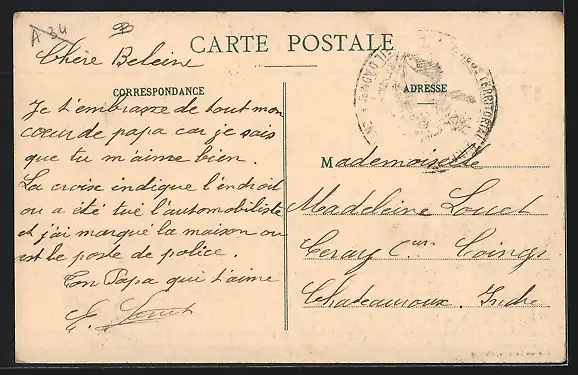 A 34
CARTE POSTALE
Chère Beleine
CORRESPONDANCE
Je t'embrasse de tout mon
cœur de papa car je sais
que tu m'aime bien.
La croise indique l'endroit
ou a été tué l'automobiliste
et j'ai marqué la maison ou
est le poste de police.
Ton Papa qui t'aime
E. Louet
ADRESSE
Mademoiselle
Madeleine Louet
Ceray Cne Coings
Chateauroux. Indre
TERRITORIAL